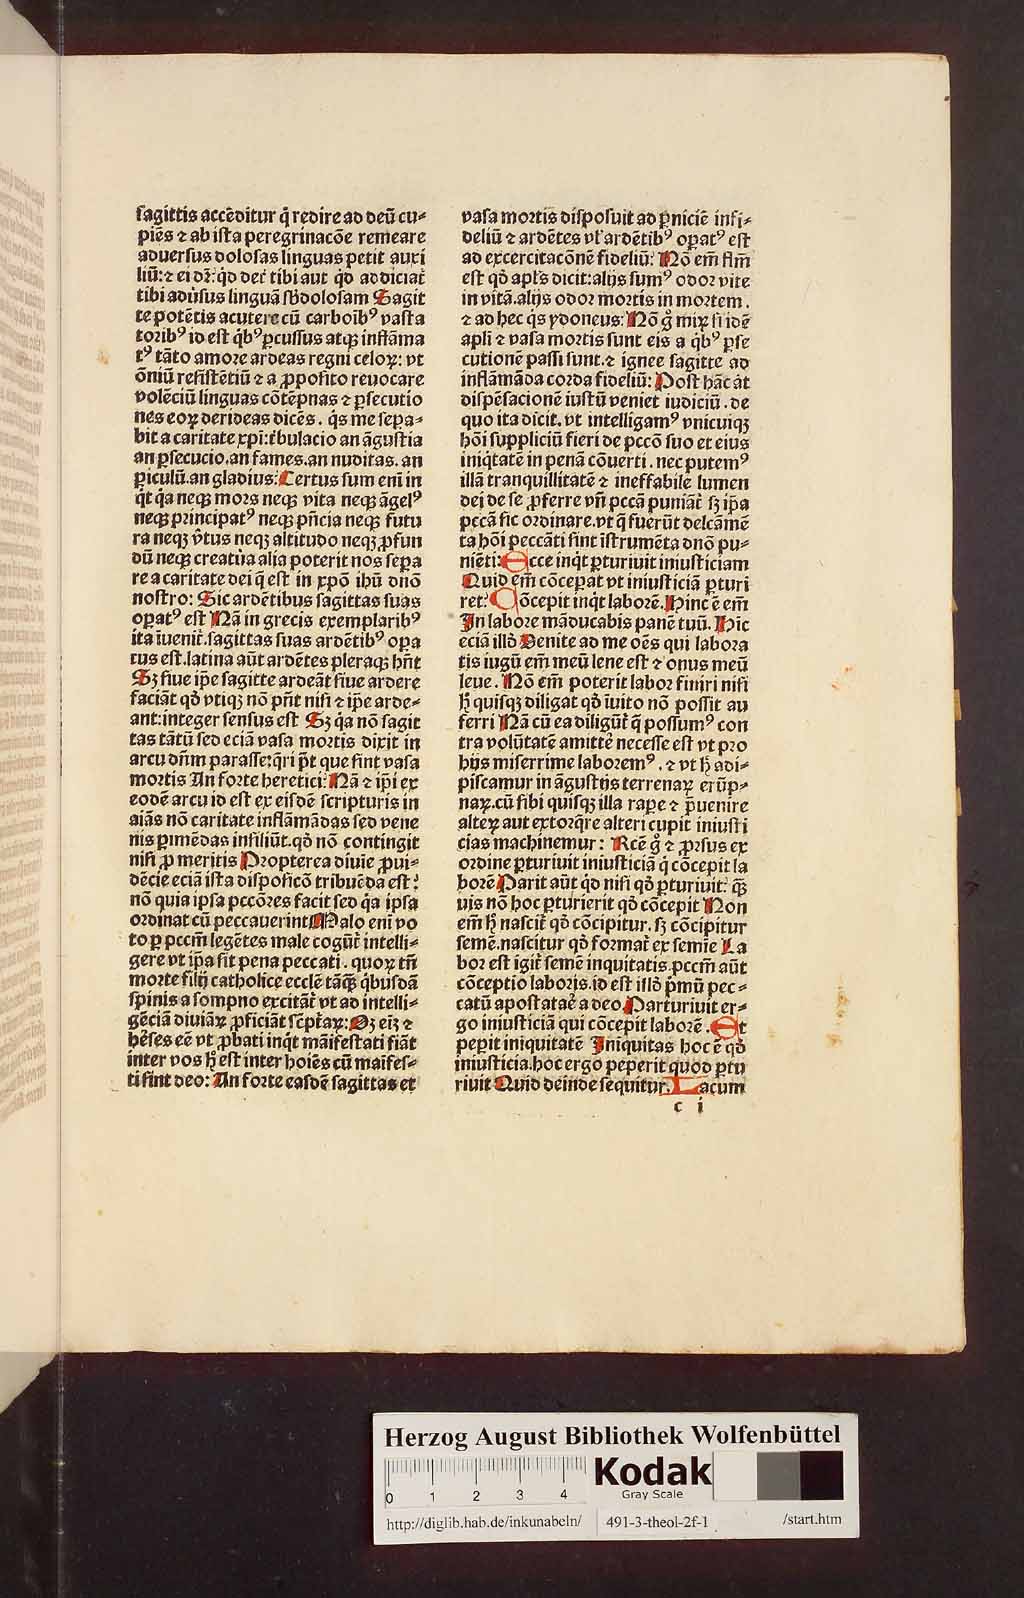 sagittis accēditur q̄ redire ad deū cu⸗
piēs ⁊ ab ista peregrinacōe remeare
aduersus dolosas linguas petit auxi
liū:⁊ ei dr̄: qd der̄ tibi aut qd addiciat̄
tibi adūsus linguā sbdolosam Sagit
te potētis acute cū carboib⁹ vasta
torib⁹ id est qb⁹ ꝑcussus atqꝫ inflāma
t⁹ tāto amore ardeas regni celoꝝ: vt
ōniū resistētiū ⁊ a ꝓposito reuocare
volēciū linguas cōtēpnas ⁊ ꝑsecutio
nes eoꝝ derideas dicēs. qs me sepa⸗
bit a caritate xpi:tͥbulacio an āgustia
an ꝑsecucio.an fames.an nuditas.an
ꝑiculū.an gladius: Certus sum eni in
qͥt qa neqꝫ mors neqꝫ vita neqꝫ āgel⁹
neqꝫ principat⁹ neqꝫ pn̄cia neqꝫ futu
ra neqꝫ v̄tus neqꝫ altitudo neqꝫ ꝓfun
dū neqꝫ creatūa alia poterit nos sepa
re a caritate dei q̄ est in xpō ihū dnō
nostro: Sic ardētibus sagittas suas
oꝑat⁹ est Nā in grecis exemplarib⁹
ita īuenit̄.sagittas suas ardētib⁹ oꝑa
tus est.latina aūt ardētes pleraqꝫ hn̄t
Sꝫ siue ip̄e sagitte ardeāt siue ardere
faciāt qd vtiqꝫ nō pn̄t nisi ⁊ ip̄e arde⸗
ant:integer sensus est Sꝫ qa nō sagit
tas tātū sed eciā vasa mortis dixit in
arcu dn̄m parasse:qri p̄t que sint vasa
mortis An forte heretici: Nā ⁊ ip̄i ex
eodē arcu id est ex eisdē scripturis in
aiās nō caritate inflāmādas sed vene
nis ꝑimēdas insiliūt.qd nō contingit
nisi ꝓ meritis Propterea diuie ꝓui⸗
dēcie eciā ista disposicō tribuēda est:
nō quia ipsa pccōres facit sed qa ipsa
ordinat cū peccauerint Malo eni vo
to ꝑ pccm̄ legētes male cogūt̄ intelli⸗
gere vt ip̄a sit pena peccati.quoꝝ tn̄
morte filij catholice eccl̄e tāqꝫ qbusdā
spinis a sompno excitāt̄ vt ad intelli⸗
gēciā diuiāꝝ ꝓficiāt scpt̄aꝝ: Oꝫ eīꝫ ⁊
hēses eē vt ꝓbati inqͥt māifestati fiāt
inter vos hͦ est inter hoīes cū maifes⸗
ti sint deo: An forte easdē sagittas et
vasa mortis disposuit ad ꝑniciē infi⸗
deliū ⁊ ardētes vl̄ ardētib⁹ oꝑat⁹ est
ad excercitacōnē fideliū: Nō em̄ flm̄
est qd apl's dicit:alijs sum⁹ odor vite
in vitā.alijs odor mortis in mortem.
⁊ ad hec qs ydoneus: Nō gͦ miꝝ si idē
apl̄i ⁊ vasa mortis sunt eis a qb⁹ ꝑse
cutionē passi sunt.⁊ ignee sagitte ad
inflāmāda corda fideliū: Post hāc at̄
dispēsacionē iustū veniet iudiciū.de
quo ita dicit.vt intelligam⁹ vnicuiqꝫ
hōi suppliciū fieri de pccō suo et eius
iniqtatē in penā cōuerti.nec putem⁹
illā tranquillitatē ⁊ ineffabile lumen
dei de se ꝓferre vn̄ pccā puniāt̄ sꝫ ip̄a
pccā sic ordinare.vt q̄ fuerūt delcāmē
ta hōi peccāti sint īstrumēta dnō pu⸗
niēti: Ecce inqͥt ꝑturiuit iniusticiam
Quid em̄ cōceꝑat vt iniusticiā ꝑturi
ret: Cōcepit inqͥt laborē. Hinc ē em̄
In labore māducabis panē tuū. Hīc
eciā illd Venite ad me oēs qui labora
tis iugū em̄ meū lene est ⁊ onus meū
leue. Nō em̄ poterit labor finiri nisi
hͦ quisqꝫ diligat qd īuito nō possit au
ferri Nā cū ea diligūt̄ q̄ possum⁹ con
tra volūtatē amitte᷑ necesse est vt pro
hijs miserrime laborem⁹.⁊ vt hͦ adi⸗
piscamur in āgustijs terrenaꝝ erūp⸗
naꝝ.cū sibi quisqꝫ illa raꝑe ⁊ p̄uenire
alteꝝ aut extorqre alteri cupit iniusti
cias machinemur: Rcē gͦ ⁊ ꝓrsus ex
ordine ꝑturiuit iniusticiā q cōcepit la
borē Parit aūt qd nisi qd ꝑturiuit: qꝫ
uis nō hoc ꝑturierit qd cōcepit Non
em̄ hͦ nascit̄ qd cōcipitur.sꝫ cōcipitur
semē.nascitur qd format̄ ex semīe La
bor est igit̄ semē inquitatis.pccm̄ aūt
cōceptio laboris.id est illd p̄mū pec⸗
catū apostatar̄ a deo. Parturiuit er⸗
go iniusticiā qui cōcepit laborē. Et
peꝑit iniquitatē Iniquitas hoc ē qd
iniusticia.hoc ergo peperit quod ꝑtu
riuit Quid deinde sequitur. Lacum
c i
Herzog August Bibliothek Wolfenbüttel
0 1 2 3 4
Kodak
Gray Scale
http://diglib.hab.de/inkunabeln/ 491-3-theol-2f-1 /start.htm